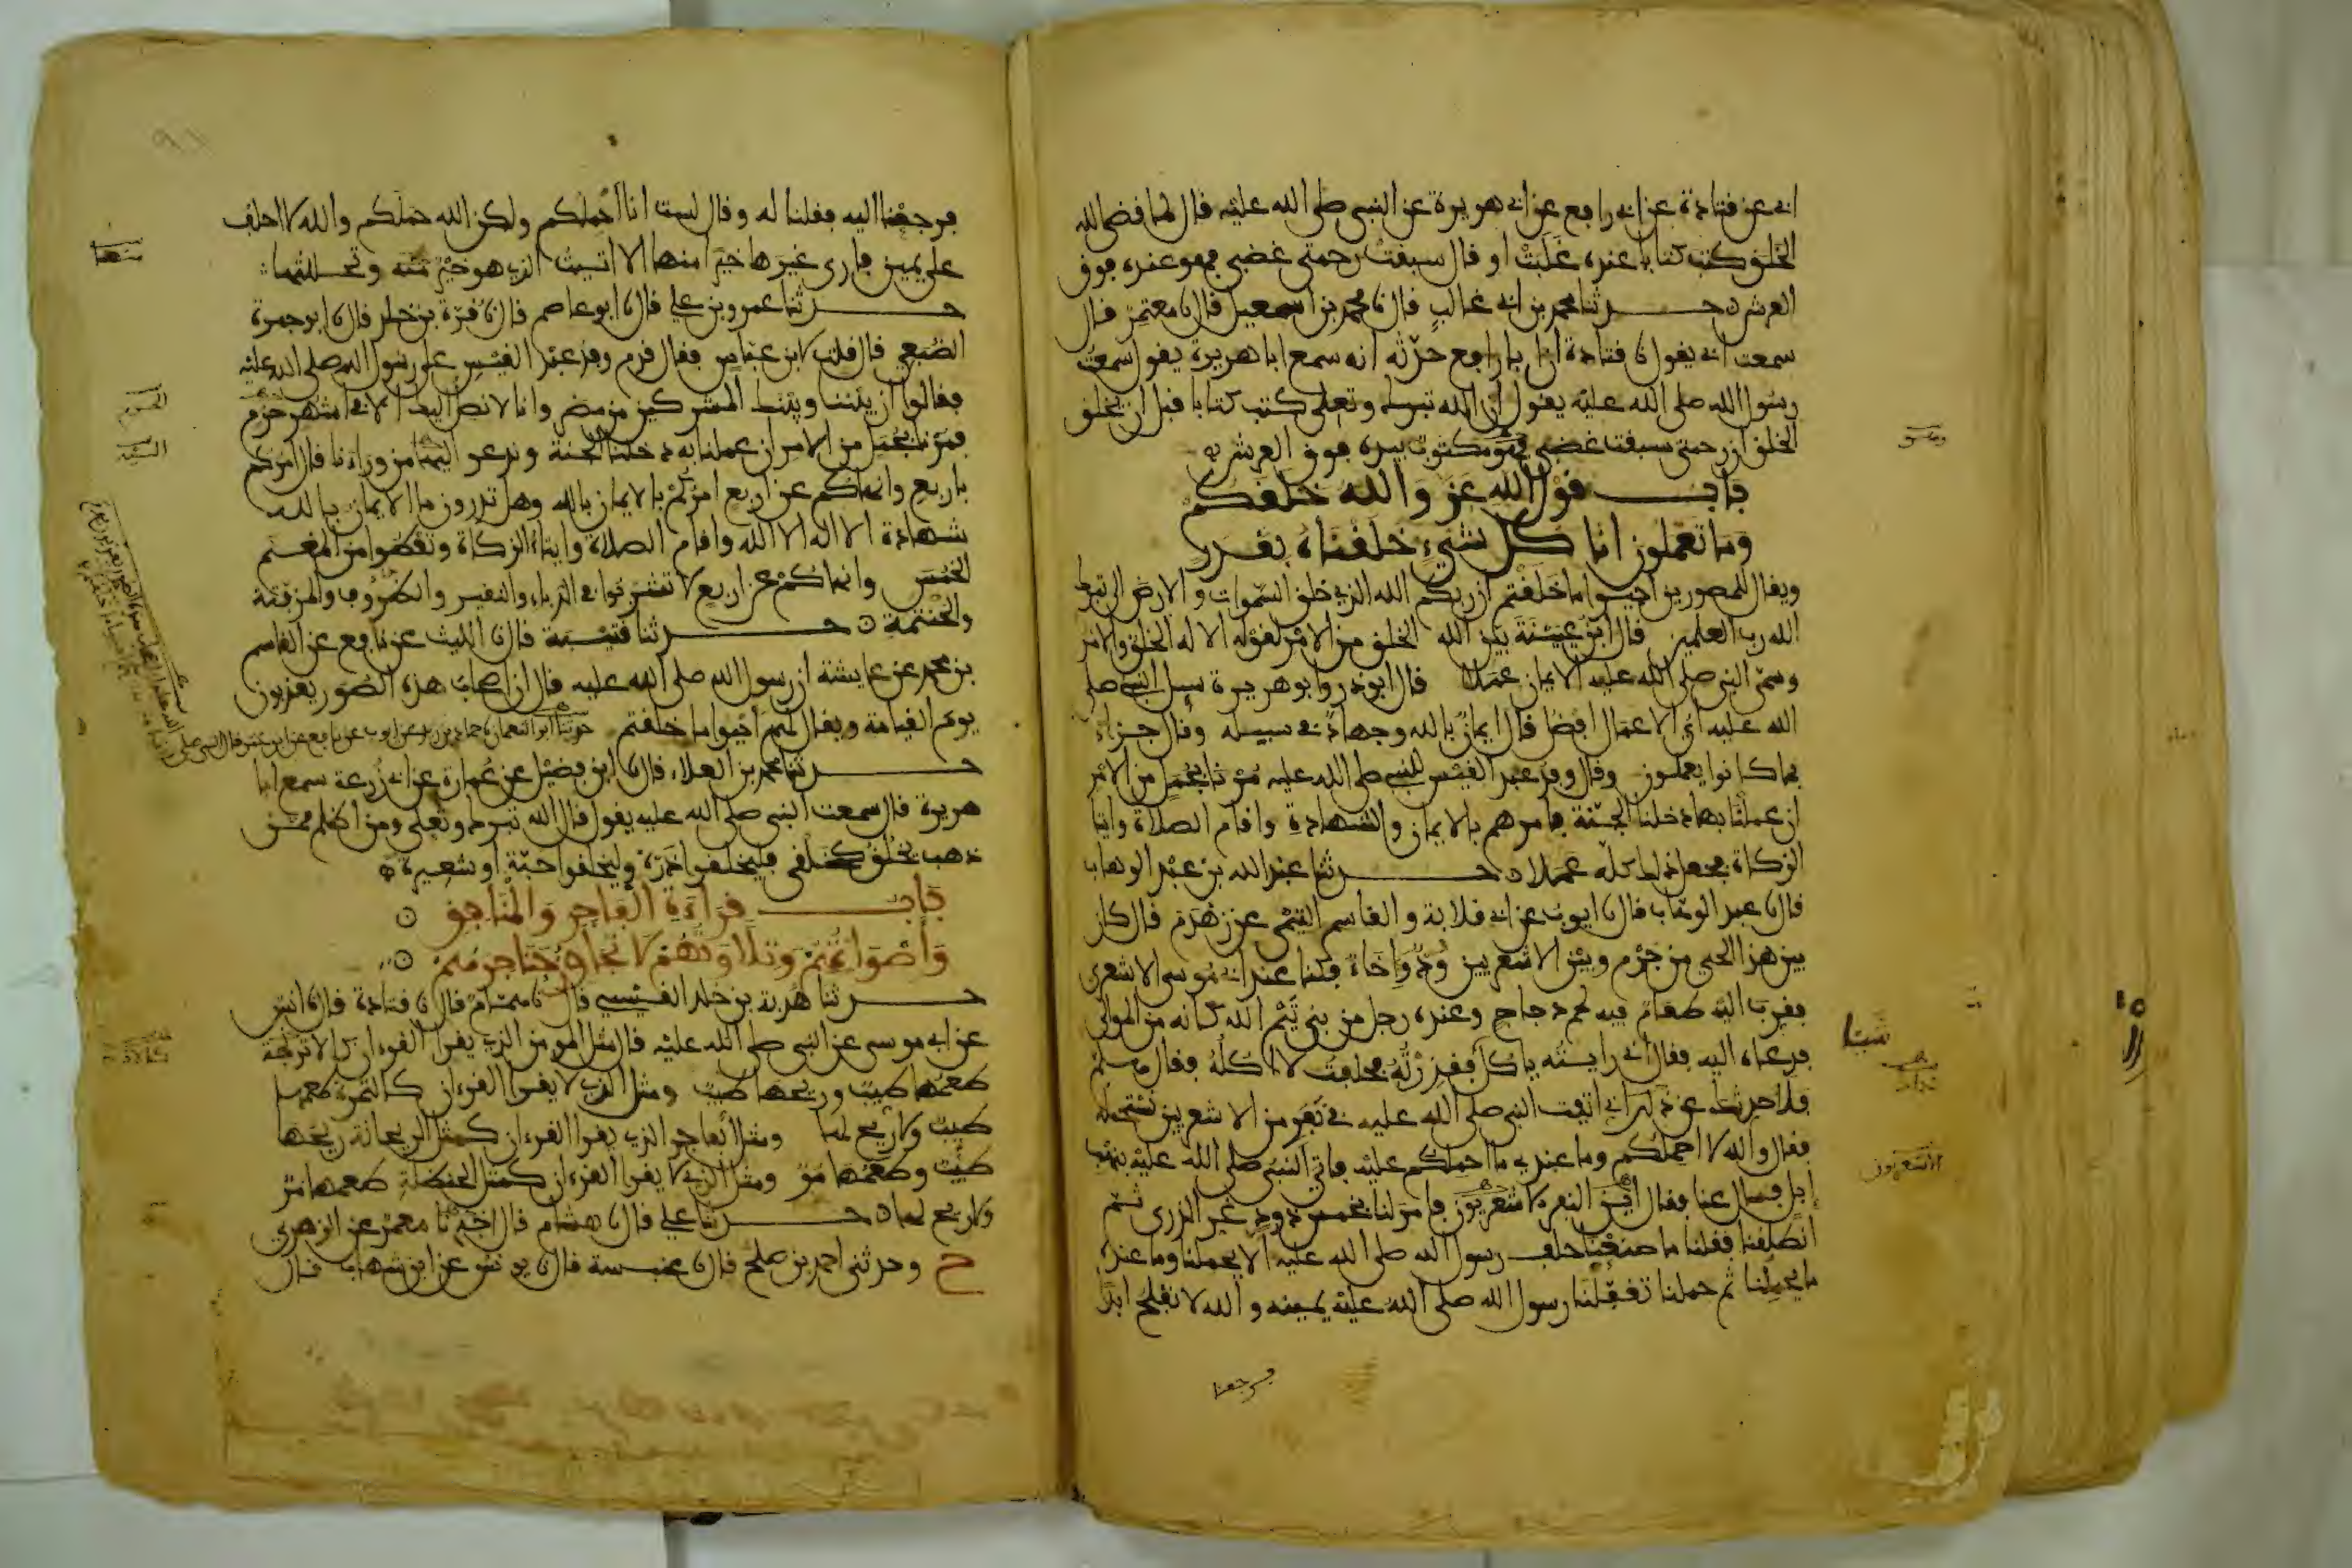 ابي عن قتادة عن ابي رافع عن ابي هريرة عن النبي صلى الله عليه قال لما قضى الله
الخلق كتب كتابا عنده غلبت او قال سبقت رحمتي غضبي فهو عنده فوق
العرش حدثنا محمد بن ابي غالب قال نا محمد بن اسمعيل قال نا معتمر قال
سمعت ابي يقول نا قتادة ان ابا رافع حدثه انه سمع ابا هريرة يقول سمعت
رسول الله صلى الله عليه يقول ان الله تبرك وتعلى كتب كتابا قبل ان يخلق
الخلق ان رحمتي سبقت غضبي فهو مكتوب عنده فوق العرش
باب قول الله عز والله خلقكم
وما تعملون انا كل شيء خلقناه بقدر
ويقال للمصورين احيوا ما خلقتم ان ربكم الله الذي خلق السموات والارض الى تبرك
الله رب العلمين قال ابن عيينة بين الله الخلق من الامر لقوله الا له الخلق والامر
وسمى النبي صلى الله عليه الايمان عملا قال ابو ذر وابو هريرة سيل النبي صلى
الله عليه اي الاعمال افضل قال ايمان بالله وجهاد في سبيله وقال جزاء
بما كانوا يعملون وقال وفد عبد القيس للنبي صلى الله عليه مرنا بجمل من الامر
ان عملنا بها دخلنا الجنة فامرهم بالايمان والشهادة واقام الصلاة وايتا
الزكاة فجعل ذلك كله عملا حدثنا عبد الله بن عبد الوهاب
قال نا عبد الوهاب قال نا ايوب عن ابي قلابة والقاسم التيمي عن زهدم قال كان
بين هذا الحي من جرم وبين الاشعريين ود واخاء فكنا عند ابي موسى الاشعري
فقرب اليه طعام فيه لحم دجاج وعنده رجل من بني تيم الله كانه من الموالي
فدعاه اليه فقال اني رايته ياكل فقذرته فحلفت لا اكله فقال هلم
فلاحدثك عن ذلك اني اتيت النبي صلى الله عليه في نفر من الاشعريين نستحمله
فقال والله لا احملكم وما عندي ما احملكم عليه فاتي النبي صلى الله عليه بنهب
ابل فسال عنا فقال اين النفر الاشعريون فامر لنا بخمس ذود غر الذرى ثم
انطلقنا فقلنا ما صنعنا حلف رسول الله صلى الله عليه الا يحملنا وما عنده
ما يحملنا ثم حملنا تغفلنا رسول الله صلى الله عليه يمينه والله لا نفلح ابدا
فرجعنا
شيئا
الاشعريون
فرجعنا اليه فقلنا له وقال لست انا احملكم ولكن الله حملكم والله لا احلف
على يمين فارى غيرها خيرا منها الا اتيت الذي هو خير منه وتحللتها
حدثنا عمرو بن علي قال نا ابو عاصم قال نا قرة بن خلد قال نا ابو جمرة
الضبعي قال قلت لابن عباس فقال قدم وفد عبد القيس على رسول الله صلى الله عليه
فقالوا ان بيننا وبينك المشركين من مضر وانا لا نصل اليك الا في اشهر حرم
فمرنا بجمل من الامر ان عملنا به دخلنا الجنة وندعو اليها من وراءنا قال امركم
باربع وانهاكم عن اربع امركم بالايمان بالله وهل تدرون ما الايمان بالله
شهادة الا اله الا الله واقام الصلاة وايتاء الزكاة وتعطوا من المغنم
الخمس وانهاكم عن اربع لا تشربوا في الدباء والنقير والظروف والمزفتة
والحنتمة حدثنا قتيبة قال نا الليث عن نافع عن القاسم
بن محمد عن عايشة ان رسول الله صلى الله عليه قال ان اصحاب هذه الصور يعذبون
يوم القيامة ويقال لهم احيوا ما خلقتم حدثنا ابو النعمان نا حماد بن زيد عن ايوب عن نافع عن ابن عمر قال النبي صلى
حدثنا محمد بن العلاء قال نا ابن فضيل عن عمارة عن ابي زرعة سمع ابا
هريرة قال سمعت النبي صلى الله عليه يقول قال الله تبرك وتعلى ومن اظلم ممن
ذهب يخلق كخلقي فليخلقوا ذرة وليخلقوا حبة او شعيرة
باب قراءة الفاجر والمنافق
واصواتهم وتلاوتهم لا تجاوز حناجرهم
حدثنا هدبة بن خلد القيسي قال نا همام قال نا قتادة قال نا انس
عن ابي موسى عن النبي صلى الله عليه قال مثل المومن الذي يقرا القرءان كالاترجة
طعمها طيب وريحها طيب ومثل الذي لا يقرا القرءان كالتمرة طعمها
طيب ولا ريح لها ومثل الفاجر الذي يقرا القرءان كمثل الريحانة ريحها
طيب وطعمها مر ومثل الذي لا يقرا القرءان كمثل الحنظلة طعمها مر
ولا ريح لها حدثنا علي قال نا هشام قال اخبرنا معمر عن الزهري
ح وحدثني احمد بن صلح قال نا عنبسة قال نا يونس عن ابن شهاب قال
منها